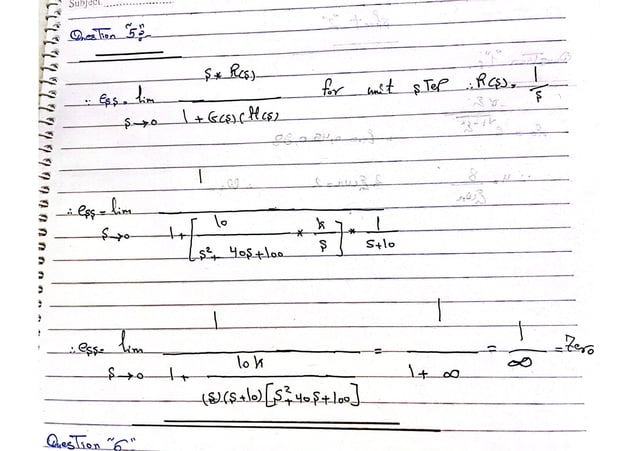 Subject
Question "5":
∴ ess = lim s→0 s * R(s) / 1 + G(s) H(s) for unit step ∴ R(s) = 1/s
∴ ess = lim s→0 1 / 1 + [10 / s² + 40s + 100 * k/s] * 1/s+10
∴ ess = lim s→0 1 / 1 + 10k / (s)(s+10)[s² + 40s + 100] = 1 / 1 + ∞ = 1/∞ = Zero
Question "6"